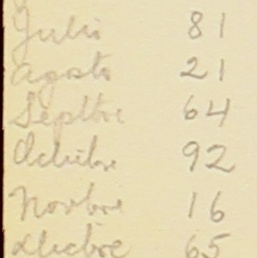 Julio 81
Agosto 21
Septbre 64
Octubre 92
Novbre 16
Dicbre 65